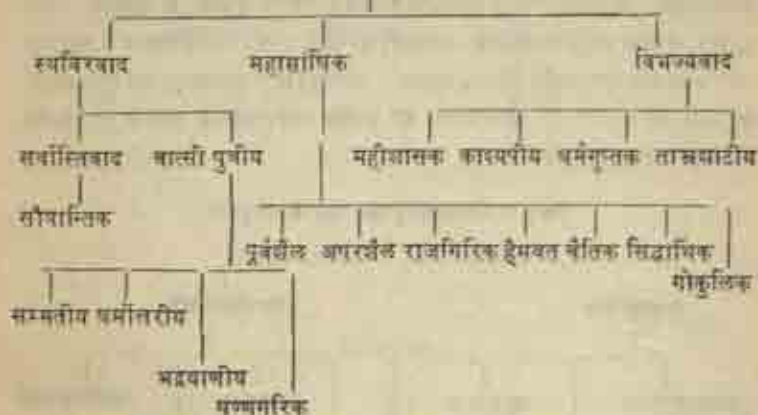 स्थविरवाद महासांघिक विभज्यवाद
सर्वास्तिवाद वात्सी पुत्रीय महीशासक काश्यपीय धर्मगुप्तक ताम्रशाटीय
सौत्रान्तिक
पूर्वशैल अपरशैल राजगिरिक हैमवत चैतिक सिद्धाथिक
गोकुलिक
सम्मतीय धर्मोत्तरीय
भद्रयाणीय
षण्णगरिक